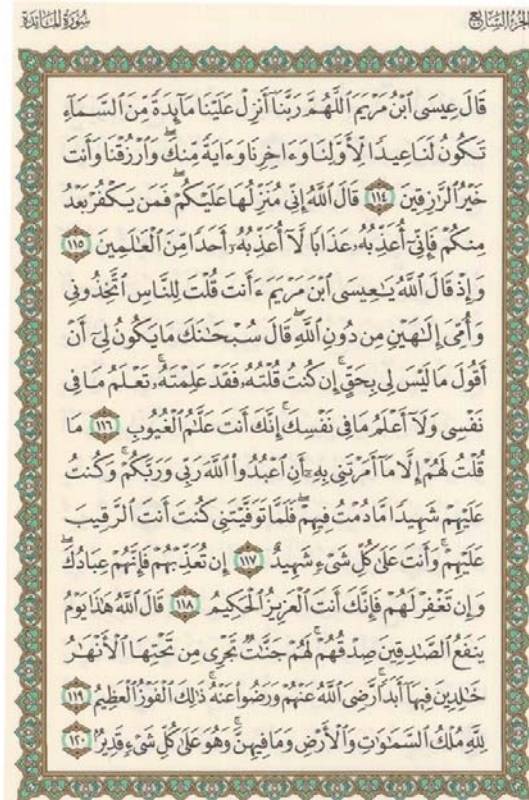 الجزء السابع
سورة المائدة
قَالَ عِيسَى ٱبْنُ مَرْيَمَ ٱللَّهُمَّ رَبَّنَآ أَنزِلْ عَلَيْنَا مَآئِدَةً مِّنَ ٱلسَّمَآءِ
تَكُونُ لَنَا عِيدًا لِّأَوَّلِنَا وَءَاخِرِنَا وَءَايَةً مِّنكَ ۖ وَٱرْزُقْنَا وَأَنتَ
خَيْرُ ٱلرَّٰزِقِينَ ١١٤ قَالَ ٱللَّهُ إِنِّى مُنَزِّلُهَا عَلَيْكُمْ ۖ فَمَن يَكْفُرْ بَعْدُ
مِنكُمْ فَإِنِّىٓ أُعَذِّبُهُۥ عَذَابًا لَّآ أُعَذِّبُهُۥٓ أَحَدًا مِّنَ ٱلْعَٰلَمِينَ ١١٥
وَإِذْ قَالَ ٱللَّهُ يَٰعِيسَى ٱبْنَ مَرْيَمَ ءَأَنتَ قُلْتَ لِلنَّاسِ ٱتَّخِذُونِى
وَأُمِّىَ إِلَٰهَيْنِ مِن دُونِ ٱللَّهِ ۖ قَالَ سُبْحَٰنَكَ مَا يَكُونُ لِىٓ أَنْ
أَقُولَ مَا لَيْسَ لِى بِحَقٍّ ۚ إِن كُنتُ قُلْتُهُۥ فَقَدْ عَلِمْتَهُۥ ۚ تَعْلَمُ مَا فِى
نَفْسِى وَلَآ أَعْلَمُ مَا فِى نَفْسِكَ ۚ إِنَّكَ أَنتَ عَلَّٰمُ ٱلْغُيُوبِ ١١٦ مَا
قُلْتُ لَهُمْ إِلَّا مَآ أَمَرْتَنِى بِهِۦٓ أَنِ ٱعْبُدُوا۟ ٱللَّهَ رَبِّى وَرَبَّكُمْ ۚ وَكُنتُ
عَلَيْهِمْ شَهِيدًا مَّا دُمْتُ فِيهِمْ ۖ فَلَمَّا تَوَفَّيْتَنِى كُنتَ أَنتَ ٱلرَّقِيبَ
عَلَيْهِمْ ۚ وَأَنتَ عَلَىٰ كُلِّ شَىْءٍ شَهِيدٌ ١١٧ إِن تُعَذِّبْهُمْ فَإِنَّهُمْ عِبَادُكَ ۖ
وَإِن تَغْفِرْ لَهُمْ فَإِنَّكَ أَنتَ ٱلْعَزِيزُ ٱلْحَكِيمُ ١١٨ قَالَ ٱللَّهُ هَٰذَا يَوْمُ
يَنفَعُ ٱلصَّٰدِقِينَ صِدْقُهُمْ ۚ لَهُمْ جَنَّٰتٌ تَجْرِى مِن تَحْتِهَا ٱلْأَنْهَٰرُ
خَٰلِدِينَ فِيهَآ أَبَدًا ۚ رَّضِىَ ٱللَّهُ عَنْهُمْ وَرَضُوا۟ عَنْهُ ۚ ذَٰلِكَ ٱلْفَوْزُ ٱلْعَظِيمُ ١١٩
لِلَّهِ مُلْكُ ٱلسَّمَٰوَٰتِ وَٱلْأَرْضِ وَمَا فِيهِنَّ ۚ وَهُوَ عَلَىٰ كُلِّ شَىْءٍ قَدِيرٌۢ ١٢٠